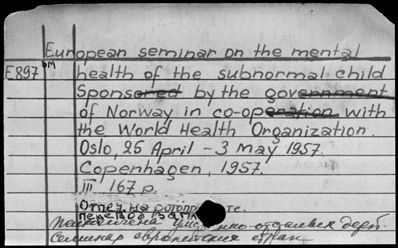 European seminar on the mental
E897 SM health of the subnormal child
Sponsored by the government
of Norway in co-operation with
the World Health Organization.
Oslo, 25 April - 3 may 1957.
Copenhagen, 1957.
III 167 p.
Отпеч. на ротопринте.
дет.
семинар европейских стран